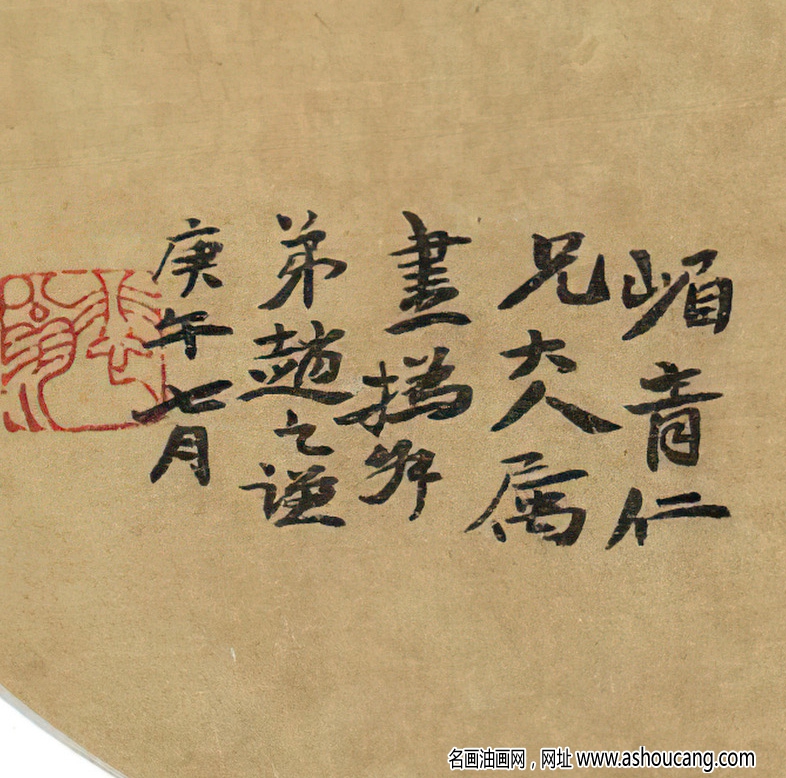 嵋青仁
兄大人属
畫撝叔
弟趙之谦
庚午七月
名画油画网，网址 www.ashoucang.com